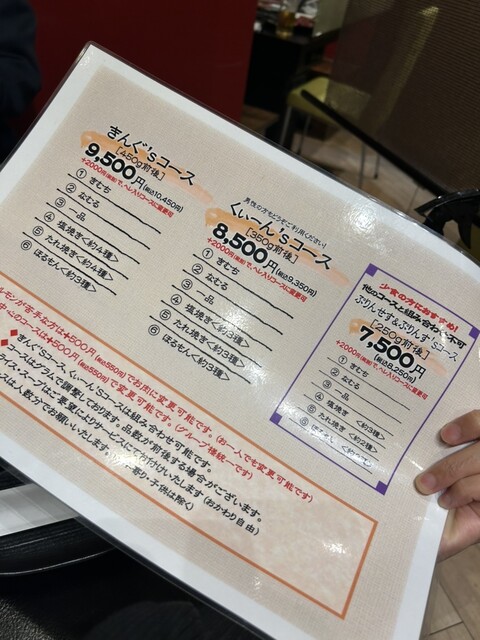 きんぐ's コース
[450g前後]
9,500円(税込10,450円)
+2000円(税抜)で、ヘレ入りコースに変更可
① きむち
② なむる
③ 一品
④ 塩焼き<約4種>
⑤ たれ焼き<約4種>
⑥ ほるもん<約3種>
男性の方もどうぞご利用ください!
くぃーん'sコース
[350g前後]
8,500円(税込9,350円)
+2000円(税抜)で、ヘレ入りコースに変更可
① きむち
② なむる
③ 一品
④ 塩焼き<約3種>
⑤ たれ焼き<約3種>
⑥ ほるもん<約3種>
少食の方におすすめ!
他のコースと組み合わせ不可
ぷりんせす&ぷりんす'sコース
[250g前後]
7,500円
(税込8,250円)
① きむち
② なむる
③ 一品
④ 塩焼き <約3種>
⑤ たれ焼き <約2種>
⑥ ほるもん
ルモンが苦手な方は+500円(税込550円)でお肉に変更可能です。(お一人でも変更可能です)
中心のコースは+500円(税込550円)で変更可能です。(グループ様統一です)
きんぐ'sコース、くぃーん'sコースは組み合わせ可能です。
コースはグラムで調整しております。品数が前後する場合がございます。
ライス・スープはご要望によりサービスにてお付けいたします(おかわり自由)
ースは人数分にてお願いいたします。
・子供は除く)